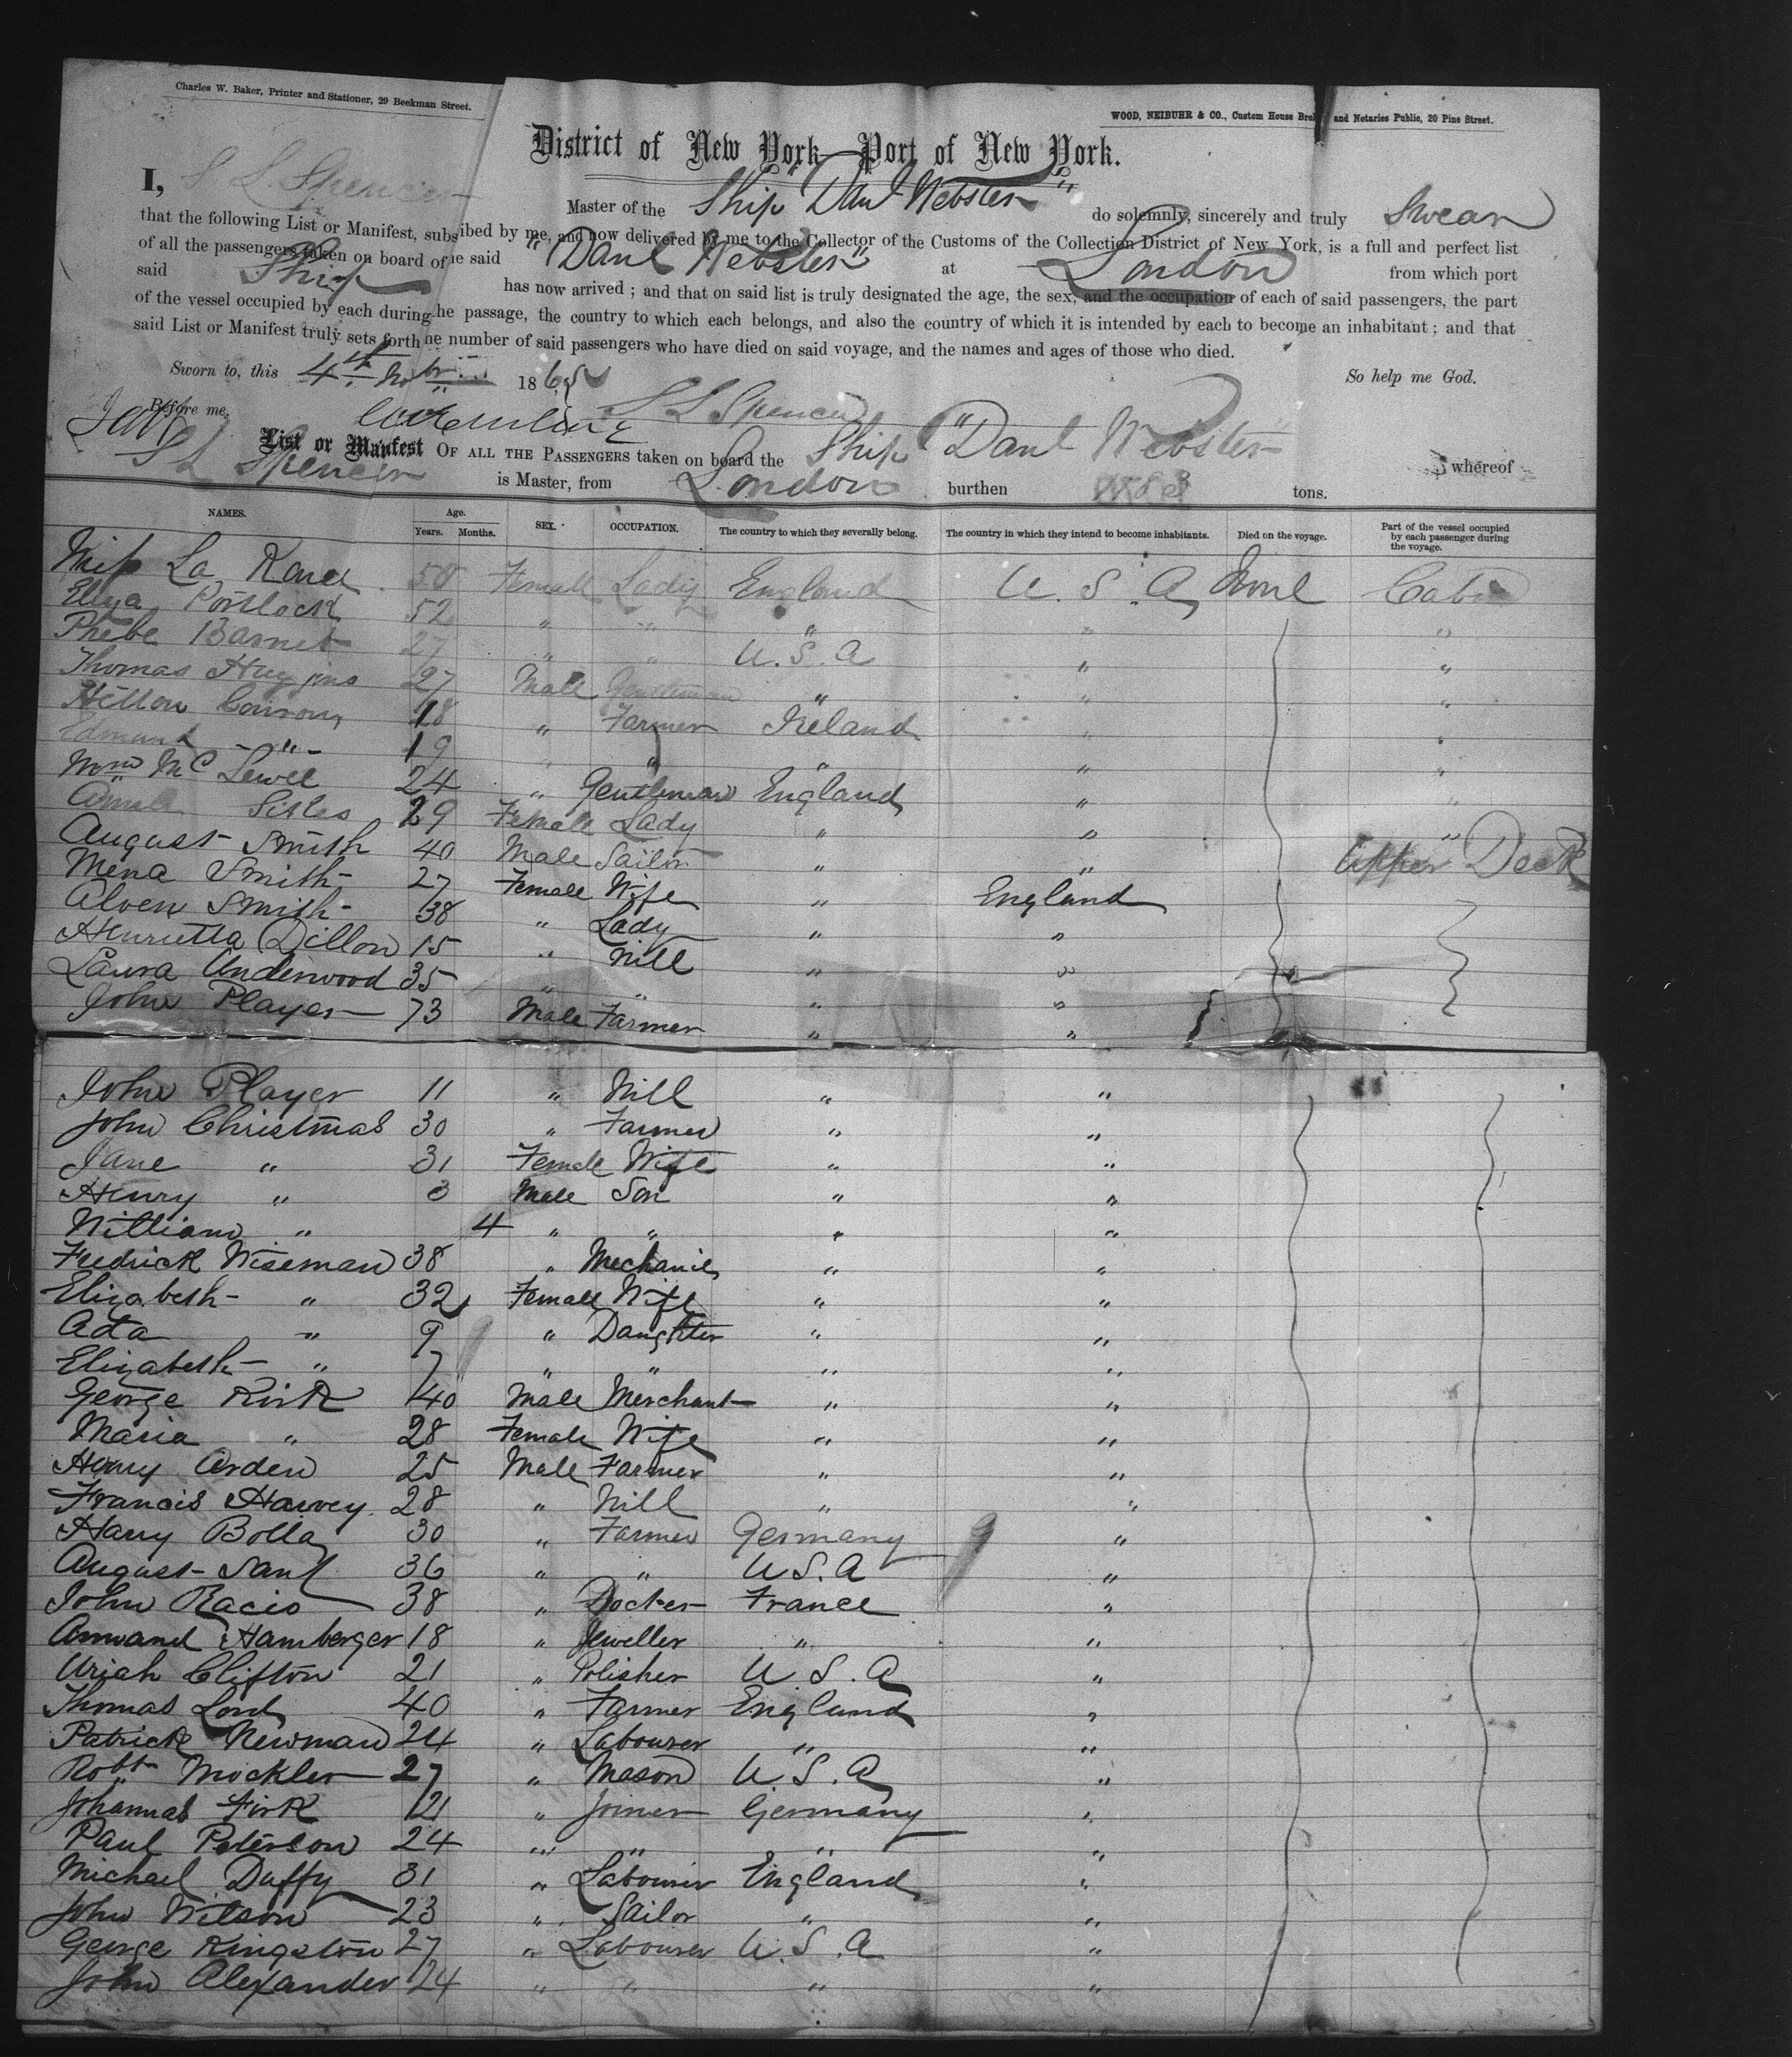 Charles W. Baker, Printer and Stationer, 29 Beekman Street.
WOOD, NEIBUHR & CO., Custom House Bro and Notaries Public, 20 Pine Street.
District of New York—Port of New York.
I, S L Spencer Master of the Ship "Danl Webster" do solemnly, sincerely and truly Swear
that the following List or Manifest, subscribed by me, and now delivered by me to the Collector of the Customs of the Collection District of New York, is a full and perfect list
of all the passengers taken on board of the said "Danl Webster" at London from which port
said Ship has now arrived ; and that on said list is truly designated the age, the sex, and the occupation of each of said passengers, the part
of the vessel occupied by each during the passage, the country to which each belongs, and also the country of which it is intended by each to become an inhabitant ; and that
said List or Manifest truly sets forth the number of said passengers who have died on said voyage, and the names and ages of those who died.
Sworn to, this 4th 1865 So help me God.
Before me, S L Spencer
List or Manifest OF ALL THE PASSENGERS taken on board the Ship "Danl Webster" whereof
S L Spencer is Master, from London burthen tons.
NAMES. Age. Years. Months. SEX. OCCUPATION. The country to which they severally belong. The country in which they intend to become inhabitants. Died on the voyage. Part of the vessel occupied by each passenger during the voyage.
Miss La 50 Female Lady England U. S. A None Cabin
Eliza Portlock 52 " " " " "
Phebe Barnet 27 " " U. S. A " "
Thomas Huggins 27 Male Gentleman " " "
18 " Farmer Ireland " "
Edmund -"- 19 " " " " "
Wm Mc 24 " Gentleman England " "
29 Female Lady " " "
August Smith 40 Male Sailor " " Upper Deck
Mena Smith 27 Female Wife " England
Smith 38 " Lady " "
Henrietta Dillon 15 " Nill " "
Laura Underwood 35 " " " "
John Player 73 Male Farmer " "
John Player 11 " Nill " "
John Christmas 30 " Farmer " "
Jane " 31 Female Wife " "
Henry " 3 Male Son " "
William " 4 " " " "
Fredrick Wiseman 38 " Mechanic " "
Elizabeth " 32 Female Wife " "
Ada " 9 " Daughter " "
Elizabeth " 7 " " " "
George Kirk 40 Male Merchant " "
Maria " 28 Female Wife " "
Henry Arden 25 Male Farmer " "
Francis Harvey 28 " Nill " "
Harry Bolla 30 " Farmer Germany "
August 36 " " U S. A "
John Racis 38 " Docter France "
Armand Hamberger 18 " Jeweller " "
Uriah Clifton 21 " Polisher U S. A "
Thomas Lord 40 " Farmer England "
Patrick Newman 24 " Labourer " "
Robt Mockler 27 " Mason U. S. A "
Johannas Fink 21 " Joiner Germany "
Paul Peterson 24 " " " "
Michael Duffy 31 " Labourer England "
John Wilson 23 " Sailor " "
George Kingston 27 " Labourer U. S. A "
John Alexander 24 " " " "